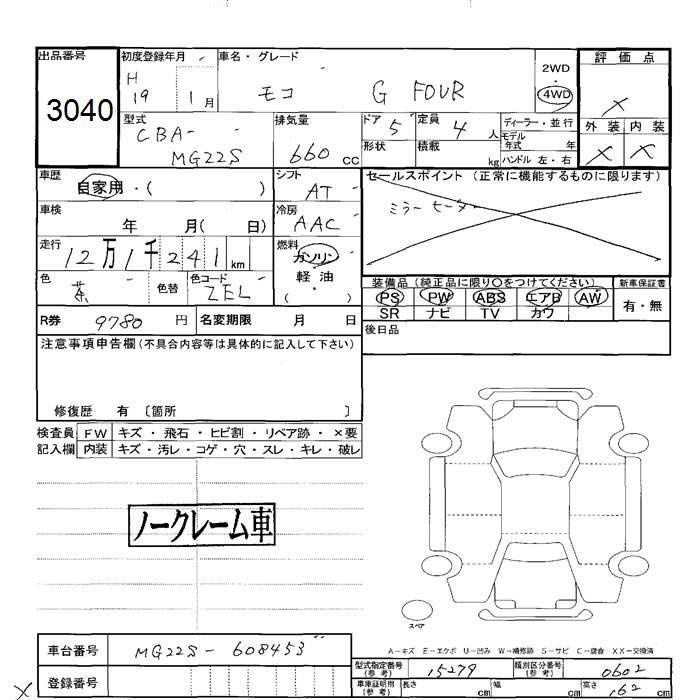 出品番号
3040
初度登録年月
H
19 1月
車名・グレード
モコ G FOUR
2WD
・
4WD
評価点
×
外装 内装
× ×
型式
CBA-
MG22S
排気量
660 cc
ドア 5
定員 4 人
形状
積載 kg
ディーラー・並行
モデル年式 年
ハンドル 左・右
車歴 自家用・( )
シフト AT
セールスポイント(正常に機能するものに限ります)
車検 年 月( 日)
冷房 AAC
走行 12万1千241km
燃料
ガソリン
軽・油
( )
色 茶 色替
色コード ZEL
装備品(純正品に限り○をつけてください)
PS PW ABS エアB AW
SR ナビ TV カワ
新車保証書
有・無
R券 9780 円 名変期限 月 日
後日品
注意事項申告欄(不具合内容等は具体的に記入して下さい)
修復歴 有 〔箇所 〕
検査員 FW キズ・飛石・ヒビ割・リペア跡・×要
記入欄 内装 キズ・汚レ・コゲ・穴・スレ・キレ・破レ
ノークレーム車
スペア
A−キズ E−エクボ U−凹み W−補修跡 S−サビ C−腐食 XX−交換済
車台番号 MG22S-608453
型式指定番号(参考) 15279
類別区分番号(参考) 0602
× 登録番号
車庫証明用(参考) 長さ cm 幅 cm 高さ 162 cm